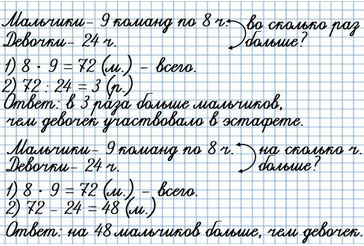 Мальчики– 9 команд по 8 ч. во сколько раз
Девочки– 24 ч. больше?
1) 8 · 9 = 72 (м.) – всего.
2) 72 : 24 = 3 (р.)
Ответ: в 3 раза больше мальчиков,
чем девочек участвовало в эстафете.
Мальчики– 9 команд по 8 ч. на сколько ч.
Девочки– 24 ч. больше?
1) 8 · 9 = 72 (м.) – всего.
2) 72 – 24 = 48 (м.)
Ответ: на 48 мальчиков больше, чем девочек.